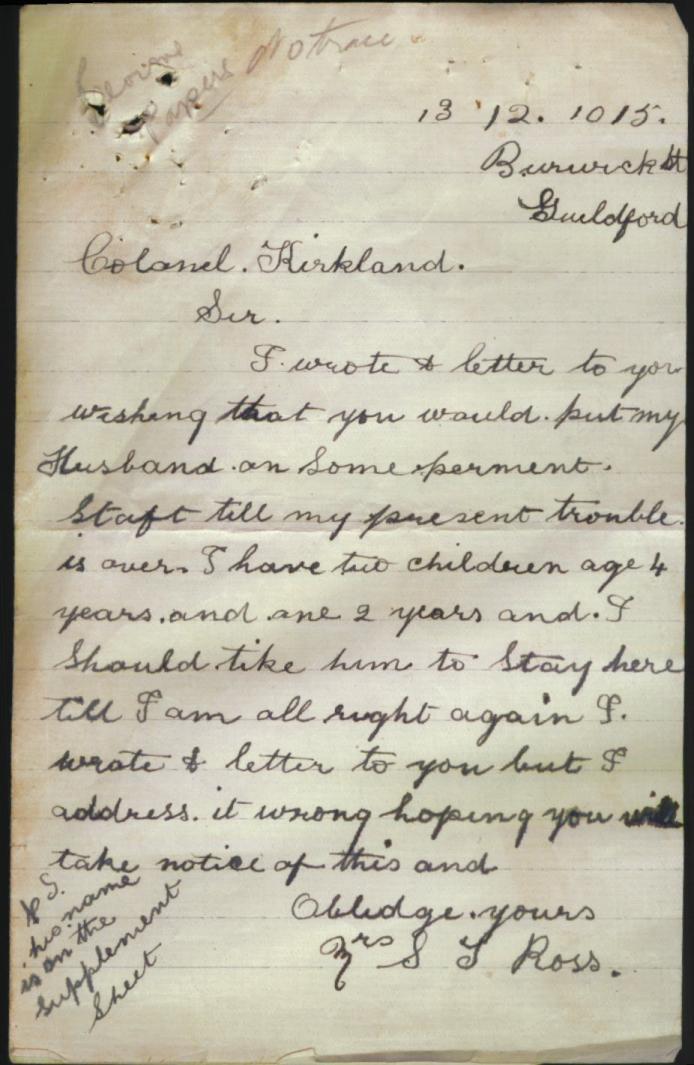 Papers No trace
13 12. 1015.
Burwick St
Guildford
Colanel. Kirkland.
Sir.
I wrote a letter to you
wishing that you would. put my
Husband. on Some perment.
Staft till my present trouble.
is over. I have two children age 4
years. and one 2 years and. I
Should like him to Stay here
till I am all right again I.
wrote a letter to you but I
address. it wrong hoping you will
take notice of this and
Obledge. yours
Mrs S T Ross.
P S.
his name
is on the
Supplement
Sheet